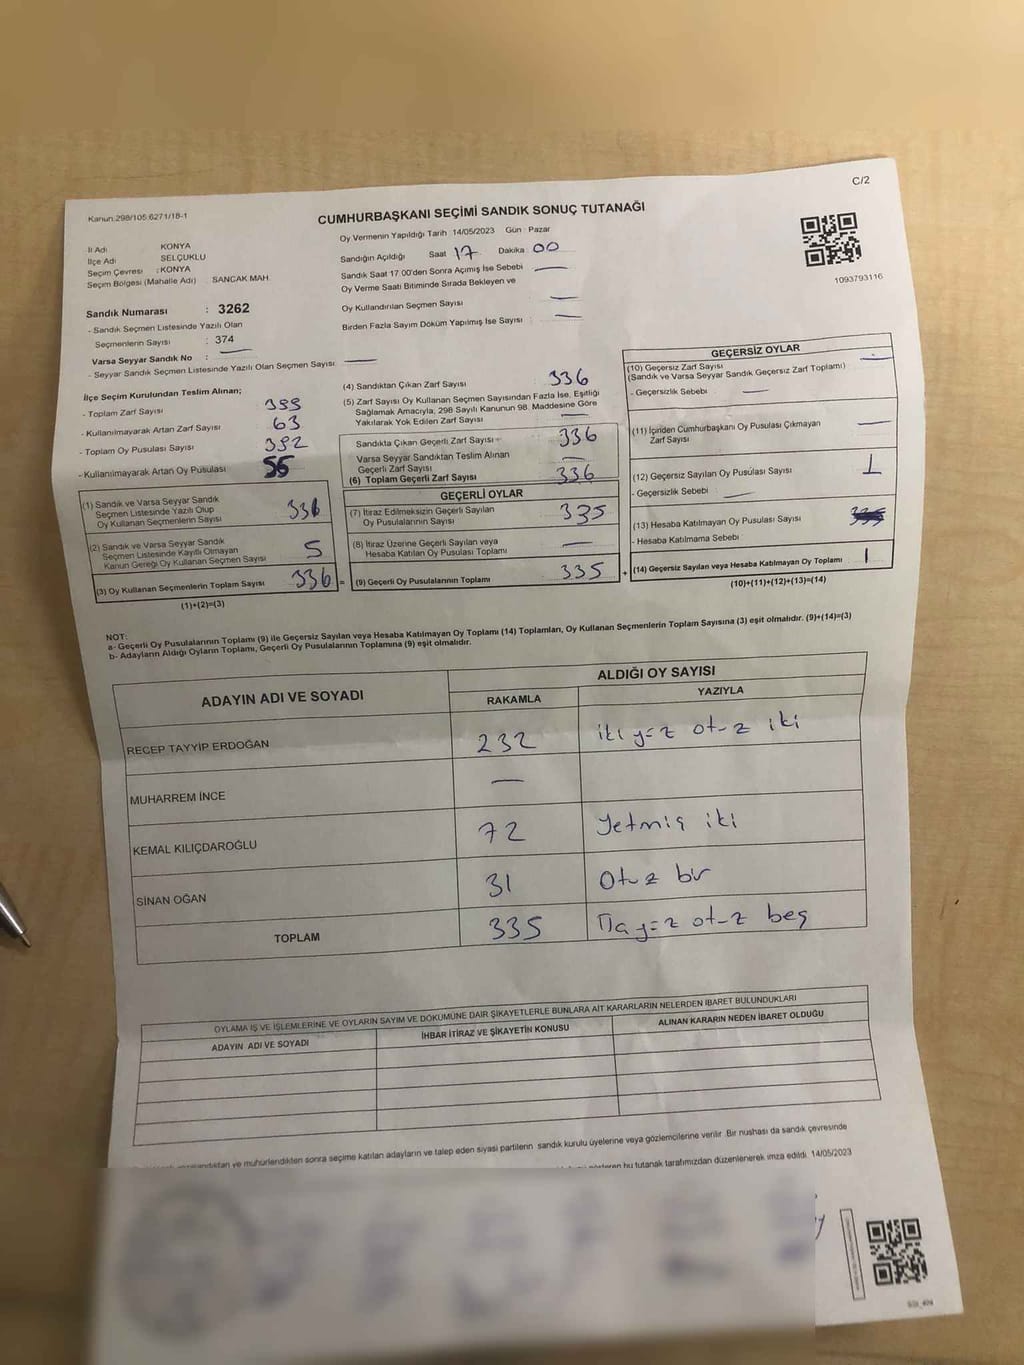 C/2
Kanun:298/105;6271/18-1
CUMHURBAŞKANI SEÇİMİ SANDIK SONUÇ TUTANAĞI
İl Adı KONYA
İlçe Adı SELÇUKLU
Seçim Çevresi : KONYA
Seçim Bölgesi (Mahalle Adı) SANCAK MAH.
Sandık Numarası : 3262
- Sandık Seçmen Listesinde Yazılı Olan
Seçmenlerin Sayısı : 374
Varsa Seyyar Sandık No : —
- Seyyar Sandık Seçmen Listesinde Yazılı Olan Seçmen Sayısı —
Oy Vermenin Yapıldığı Tarih : 14/05/2023 Gün : Pazar
Sandığın Açıldığı Saat 17 Dakika : 00
Sandık Saat 17:00'den Sonra Açımış İse Sebebi —
Oy Verme Saati Bitiminde Sırada Bekleyen ve
Oy Kullandırılan Seçmen Sayısı —
Birden Fazla Sayım Döküm Yapılmış İse Sayısı : —
1093793116
İlçe Seçim Kurulundan Teslim Alınan;
- Toplam Zarf Sayısı 399
- Kullanılmayarak Artan Zarf Sayısı 63
- Toplam Oy Pusulası Sayısı 392
- Kullanılmayarak Artan Oy Pusulası 56
(1) Sandık ve Varsa Seyyar Sandık
Seçmen Listesinde Yazılı Olup
Oy Kullanan Seçmenlerin Sayısı 336
(2) Sandık ve Varsa Seyyar Sandık
Seçmen Listesinde Kayıtlı Olmayan
Kanun Gereği Oy Kullanan Seçmen Sayısı 5
(3) Oy Kullanan Seçmenlerin Toplam Sayısı 336 =
(1)+(2)=(3)
(4) Sandıktan Çıkan Zarf Sayısı 336
(5) Zarf Sayısı Oy Kullanan Seçmen Sayısından Fazla İse, Eşitliği
Sağlamak Amacıyla, 298 Sayılı Kanunun 98. Maddesine Göre
Yakılarak Yok Edilen Zarf Sayısı —
Sandıkta Çıkan Geçerli Zarf Sayısı 336
Varsa Seyyar Sandıktan Teslim Alınan
Geçerli Zarf Sayısı —
(6) Toplam Geçerli Zarf Sayısı 336
GEÇERLİ OYLAR
(7) İtiraz Edilmeksizin Geçerli Sayılan
Oy Pusulalarının Sayısı 335
(8) İtiraz Üzerine Geçerli Sayılan veya
Hesaba Katılan Oy Pusulası Toplamı —
(9) Geçerli Oy Pusulalarının Toplamı 335 +
GEÇERSİZ OYLAR
(10) Geçersiz Zarf Sayısı —
(Sandık ve Varsa Seyyar Sandık Geçersiz Zarf Toplamı)
- Geçersizlik Sebebi —
(11) İçinden Cumhurbaşkanı Oy Pusulası Çıkmayan
Zarf Sayısı —
(12) Geçersiz Sayılan Oy Pusulası Sayısı 1
- Geçersizlik Sebebi —
(13) Hesaba Katılmayan Oy Pusulası Sayısı
- Hesaba Katılmama Sebebi
(14) Geçersiz Sayılan veya Hesaba Katılmayan Oy Toplamı 1
(10)+(11)+(12)+(13)=(14)
NOT:
a- Geçerli Oy Pusulalarının Toplamı (9) ile Geçersiz Sayılan veya Hesaba Katılmayan Oy Toplamı (14) Toplamları, Oy Kullanan Seçmenlerin Toplam Sayısına (3) eşit olmalıdır. (9)+(14)=(3)
b- Adayların Aldığı Oyların Toplamı, Geçerli Oy Pusulalarının Toplamına (9) eşit olmalıdır.
ADAYIN ADI VE SOYADI
ALDIĞI OY SAYISI
RAKAMLA YAZIYLA
RECEP TAYYİP ERDOĞAN 232 iki yüz otuz iki
MUHARREM İNCE —
KEMAL KILIÇDAROĞLU 72 Yetmiş iki
SİNAN OĞAN 31 Otuz bir
TOPLAM 335 Üç yüz otuz beş
OYLAMA İŞ VE İŞLEMLERİNE VE OYLARIN SAYIM VE DÖKÜMÜNE DAİR ŞİKAYETLERLE BUNLARA AİT KARARLARIN NELERDEN İBARET BULUNDUKLARI
ADAYIN ADI VE SOYADI İHBAR İTİRAZ VE ŞİKAYETİN KONUSU ALINAN KARARIN NEDEN İBARET OLDUĞU
ve mühürlendikten sonra seçime katılan adayların ve talep eden siyasi partilerin sandık kurulu üyelerine veya gözlemcilerine verilir. Bir nushası da sandık çevresinde
bu tutanak tarafımızdan düzenlenerek imza edildi. 14/05/2023